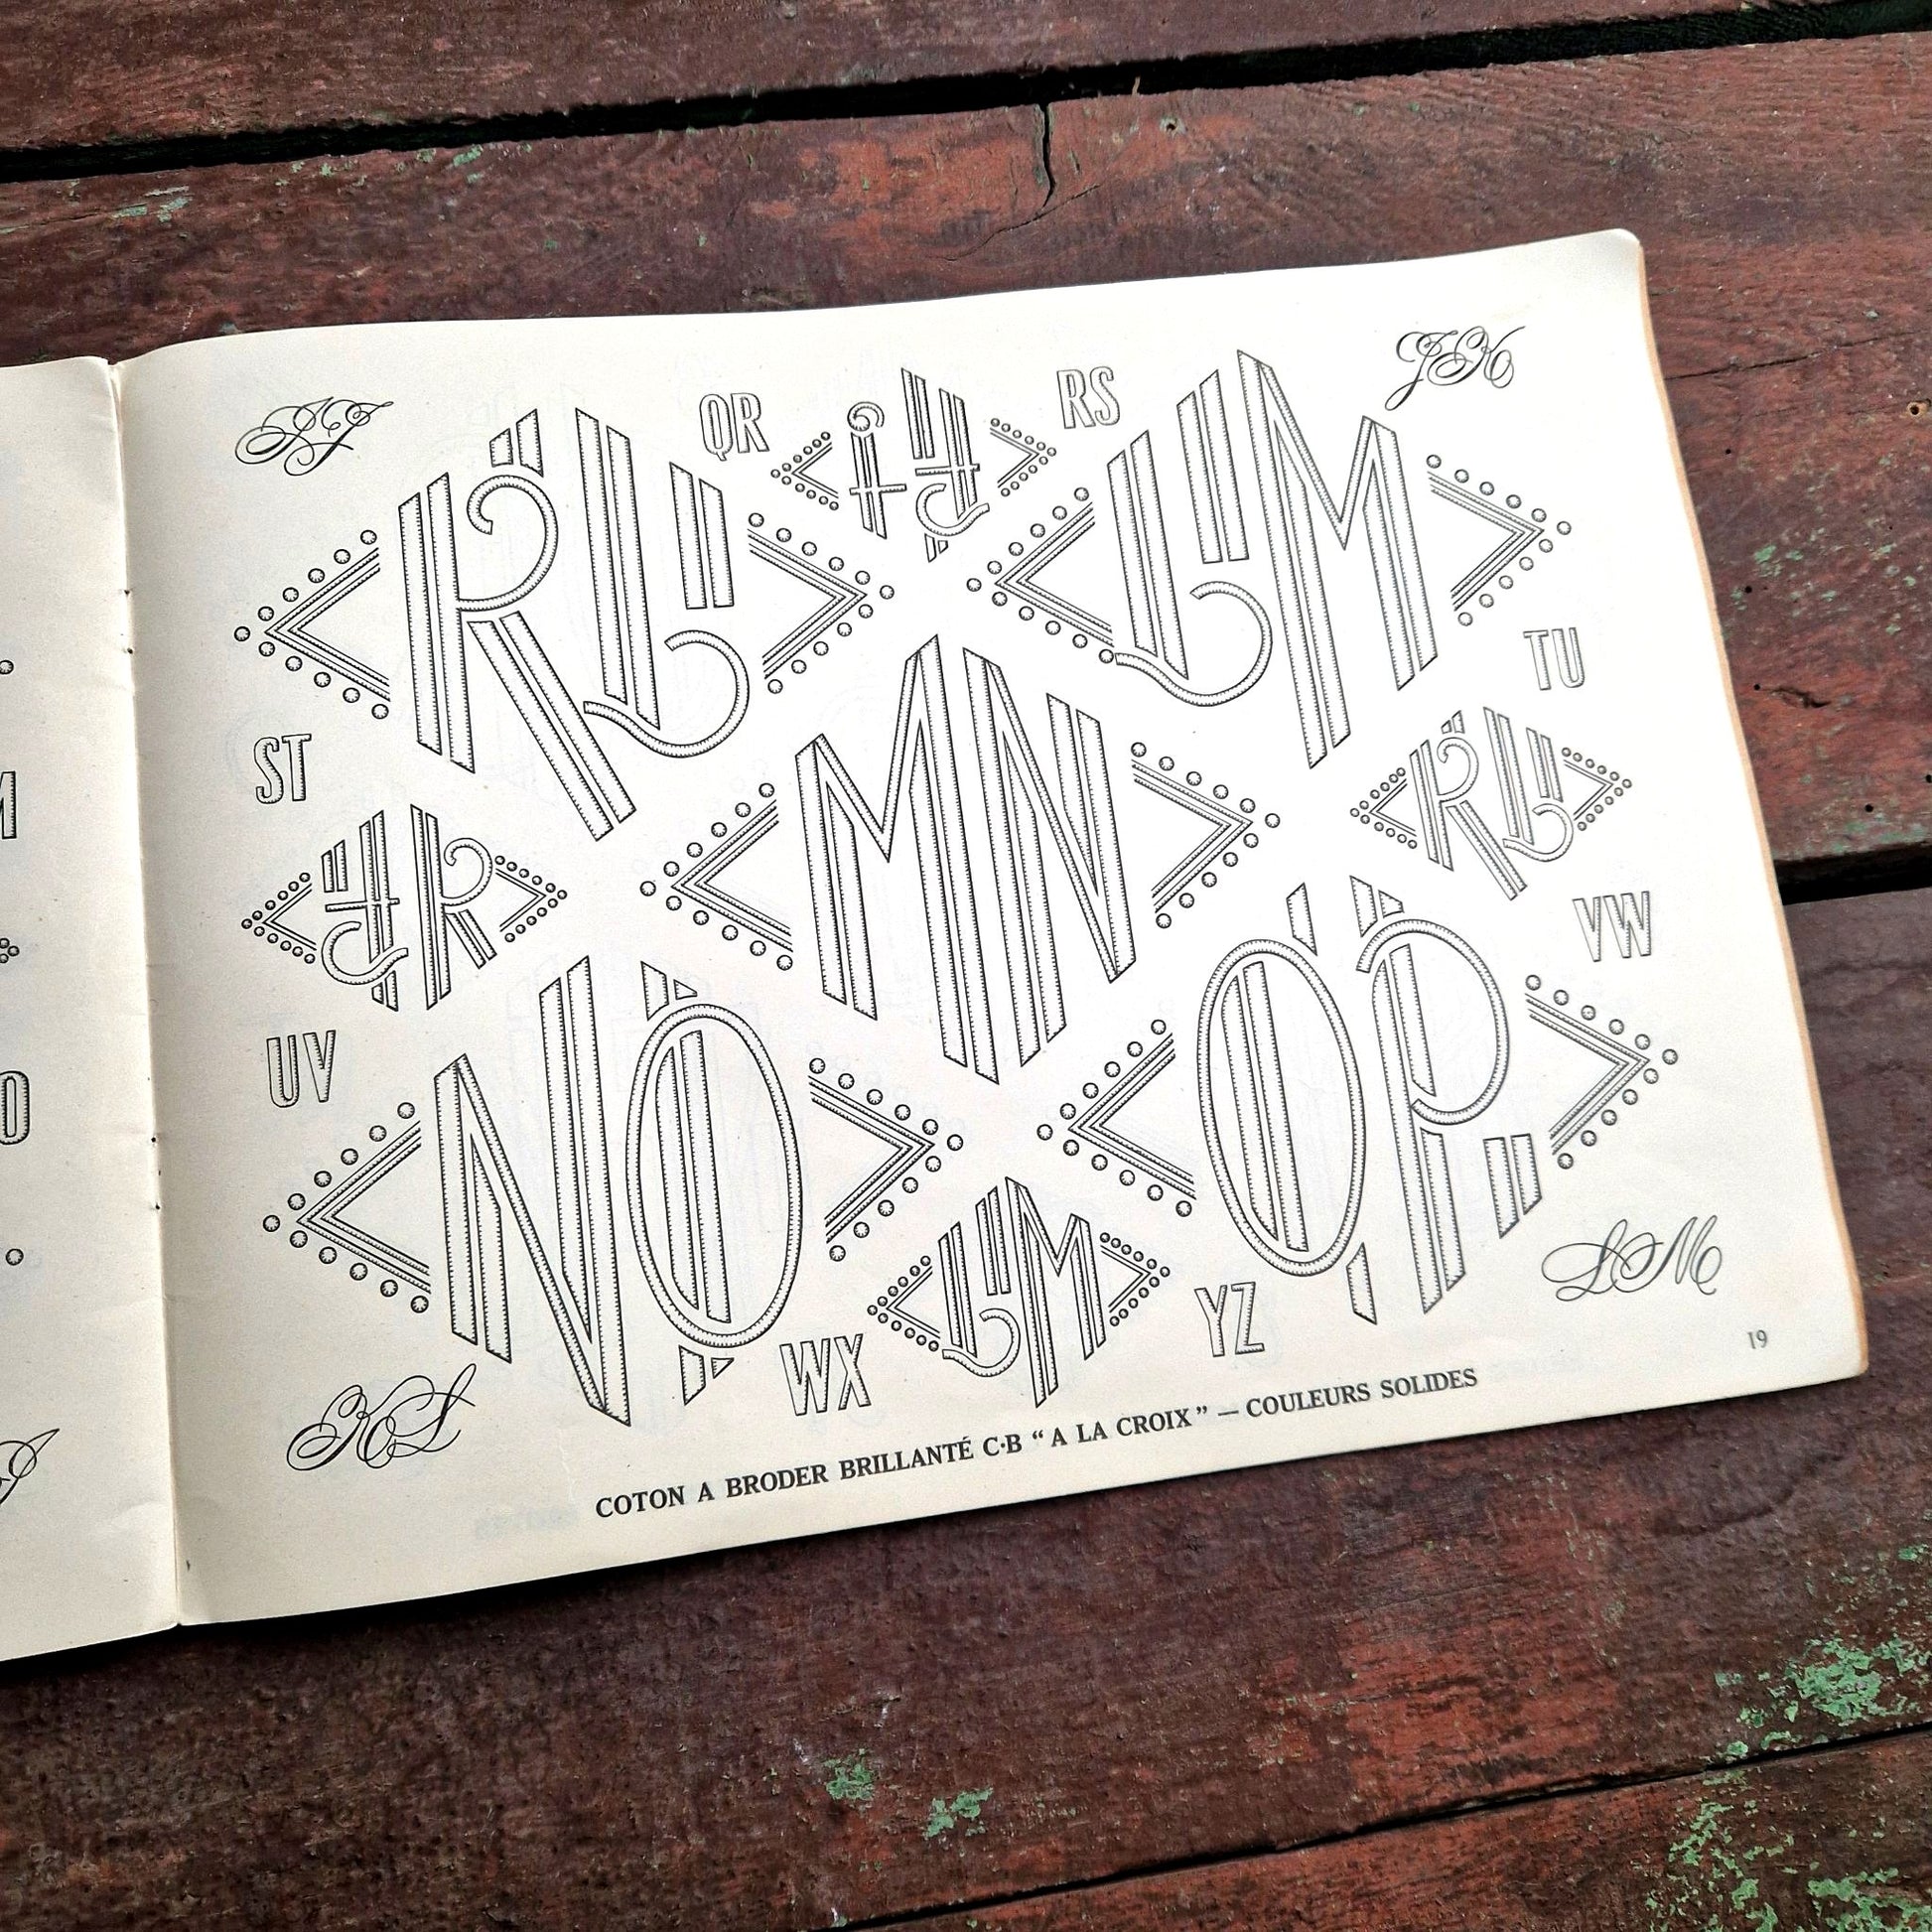 IJ
QR
IJ
RS
JK
KL
LM
TU
ST
JK
MN
KL
VW
UV
NO
OP
LM
KL
WX
YZ
LM
19
COTON A BRODER BRILLANTÉ C·B “A LA CROIX” — COULEURS SOLIDES
M
O